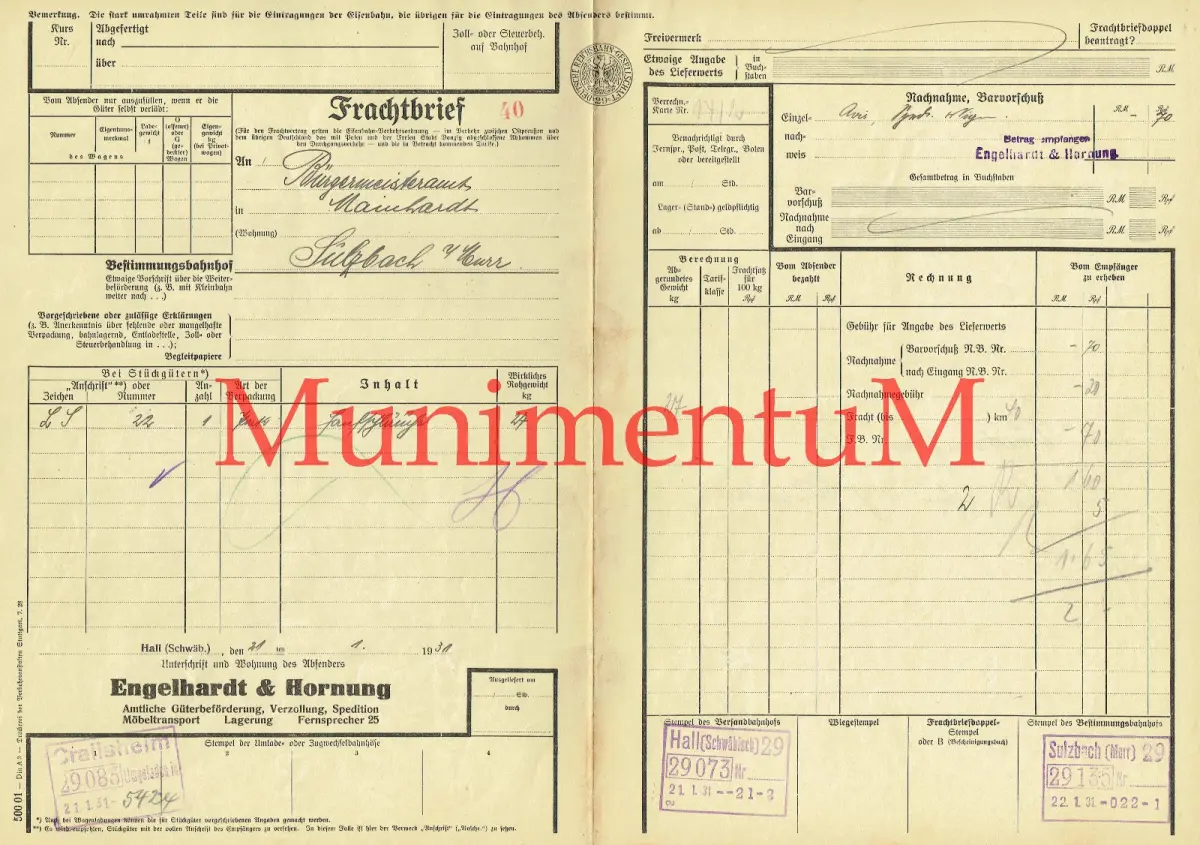 Bemerkung. Die stark umrahmten Teile sind für die Eintragungen der Eisenbahn, die übrigen für die Eintragungen des Absenders bestimmt.
Kurs Nr.
Abgefertigt
nach
über
Zoll- oder Steuerbeh.
auf Bahnhof
Vom Absender nur auszufüllen, wenn er die
Güter selbst verlädt:
Nummer
Eigentums-
merkmal
Lade-
gewicht
t
O
(offener)
oder
G
(ge-
deckter)
Wagen
Eigen-
gewicht
kg
(bei Privat-
wagen)
des Wagens
Frachtbrief 40
(Für den Frachtvertrag gelten die Eisenbahn-Verkehrsordnung — im Verkehr zwischen Ostpreußen und
dem übrigen Deutschland das mit Polen und der Freien Stadt Danzig abgeschlossene Abkommen über
den Durchgangsverkehr — und die in Betracht kommenden Tarife.)
An Bürgermeisteramt
in Mainhardt
(Wohnung)
Bestimmungsbahnhof Sulzbach a/Murr
Etwaige Vorschrift über die Weiter-
beförderung (z. B. mit Kleinbahn
weiter nach . . .)
Vorgeschriebene oder zulässige Erklärungen
(z. B. Anerkenntnis über fehlende oder mangelhafte
Verpackung, bahnlagernd, Entladestelle, Zoll- oder
Steuerbehandlung in . . .);
Begleitpapiere
Bei Stückgütern*)
„Anschrift"**) oder
Zeichen Nummer
An-
zahl
Art der
Verpackung
Inhalt
Wirkliches
Rohgewicht
kg
L S 22 1 27
MunimentuM
Hall (Schwäb.), den 21 ten 1. 1931
Unterschrift und Wohnung des Absenders
Engelhardt & Hornung
Amtliche Güterbeförderung, Verzollung, Spedition
Möbeltransport Lagerung Fernsprecher 25
Ausgeliefert am
Std.
durch
Stempel der Umlade- oder Zugwechselbahnhöfe
2 3 4
Crailsheim
29083
21.1.31-
5424
*) Auch bei Wagenladungen können die für Stückgüter vorgeschriebenen Angaben gemacht werden.
**) Es wird empfohlen, Stückgüter mit der vollen Anschrift des Empfängers zu versehen. In diesem Falle ist hier der Vermerk „Anschrift" („Anschr.") zu setzen.
500 01 — Din A 3 — Druckerei der Verkehrsanstalten Stuttgart, 7. 29
Freivermerk
Frachtbriefdoppel
beantragt?
Etwaige Angabe
des Lieferwerts
in
Buch-
staben
RM
Verrechn.-
Karte Nr.
Benachrichtigt durch
Fernspr., Post, Telegr., Boten
oder bereitgestellt
am / Std.
Lager- (Stand-) geldpflichtig
ab / Std.
Nachnahme, Barvorschuß
RM Rpf
Einzel-
nach-
weis
- 70
Betrag empfangen
Engelhardt & Hornung.
Gesamtbetrag in Buchstaben
Bar-
vorschuß
RM Rpf
Nachnahme
nach
Eingang
RM Rpf
Berechnung
Ab-
gerundetes
Gewicht
kg
Tarif-
klasse
Frachtsatz
für
100 kg
Rpf
Vom Absender
bezahlt
RM Rpf
Rechnung
Vom Empfänger
zu erheben
RM Rpf
Gebühr für Angabe des Lieferwerts
Nachnahme
Barvorschuß N.B. Nr. - 70
nach Eingang N.B. Nr.
Nachnahmegebühr - 20
Fracht (bis ) km 40
F.B. Nr. - 70
1 60
2 5
1.65
2 -
Stempel des Versandbahnhofs
Wiegestempel
Frachtbriefdoppel-
Stempel
oder B (Bescheinigungsbuch)
Stempel des Bestimmungsbahnhofs
Hall (Schwäbisch) 29
29073 Nr
21.1.31--21-2
Sulzbach (Murr) 29
29135 Nr
22.1.31-022-1